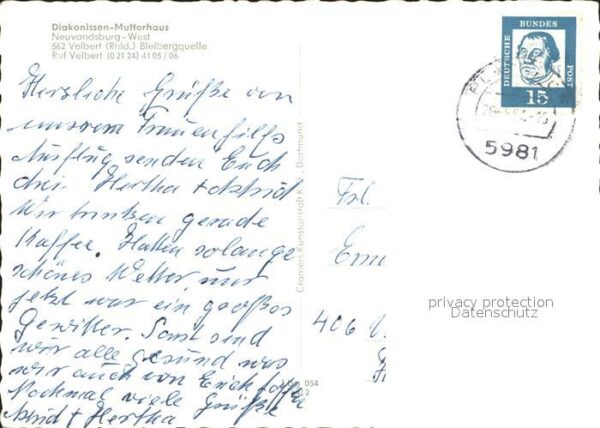 Diakonissen-Mutterhaus
Neuvandsburg-West
562 Velbert (Rhld.) Bleibergquelle
Ruf Velbert (0 21 24) 41 05 / 06
Herzliche Grüße von
unserem Frauenhilfs
Ausflug senden Euch
drei Hertha + Astrid
Wir trinken gerade
Kaffee. Hatten solange
schönes Wetter, nur
jetzt war ein großes
Gewitter. Sonst sind
wir alle gesund was
wir auch von Euch hoffen
Nochmal viele Grüße
Astrid + Hertha
Cramers Kunstanstalt KG., Dortmund
054
DEUTSCHE
BUNDES
POST
15
5981
Frl.
406
privacy protection
Datenschutz